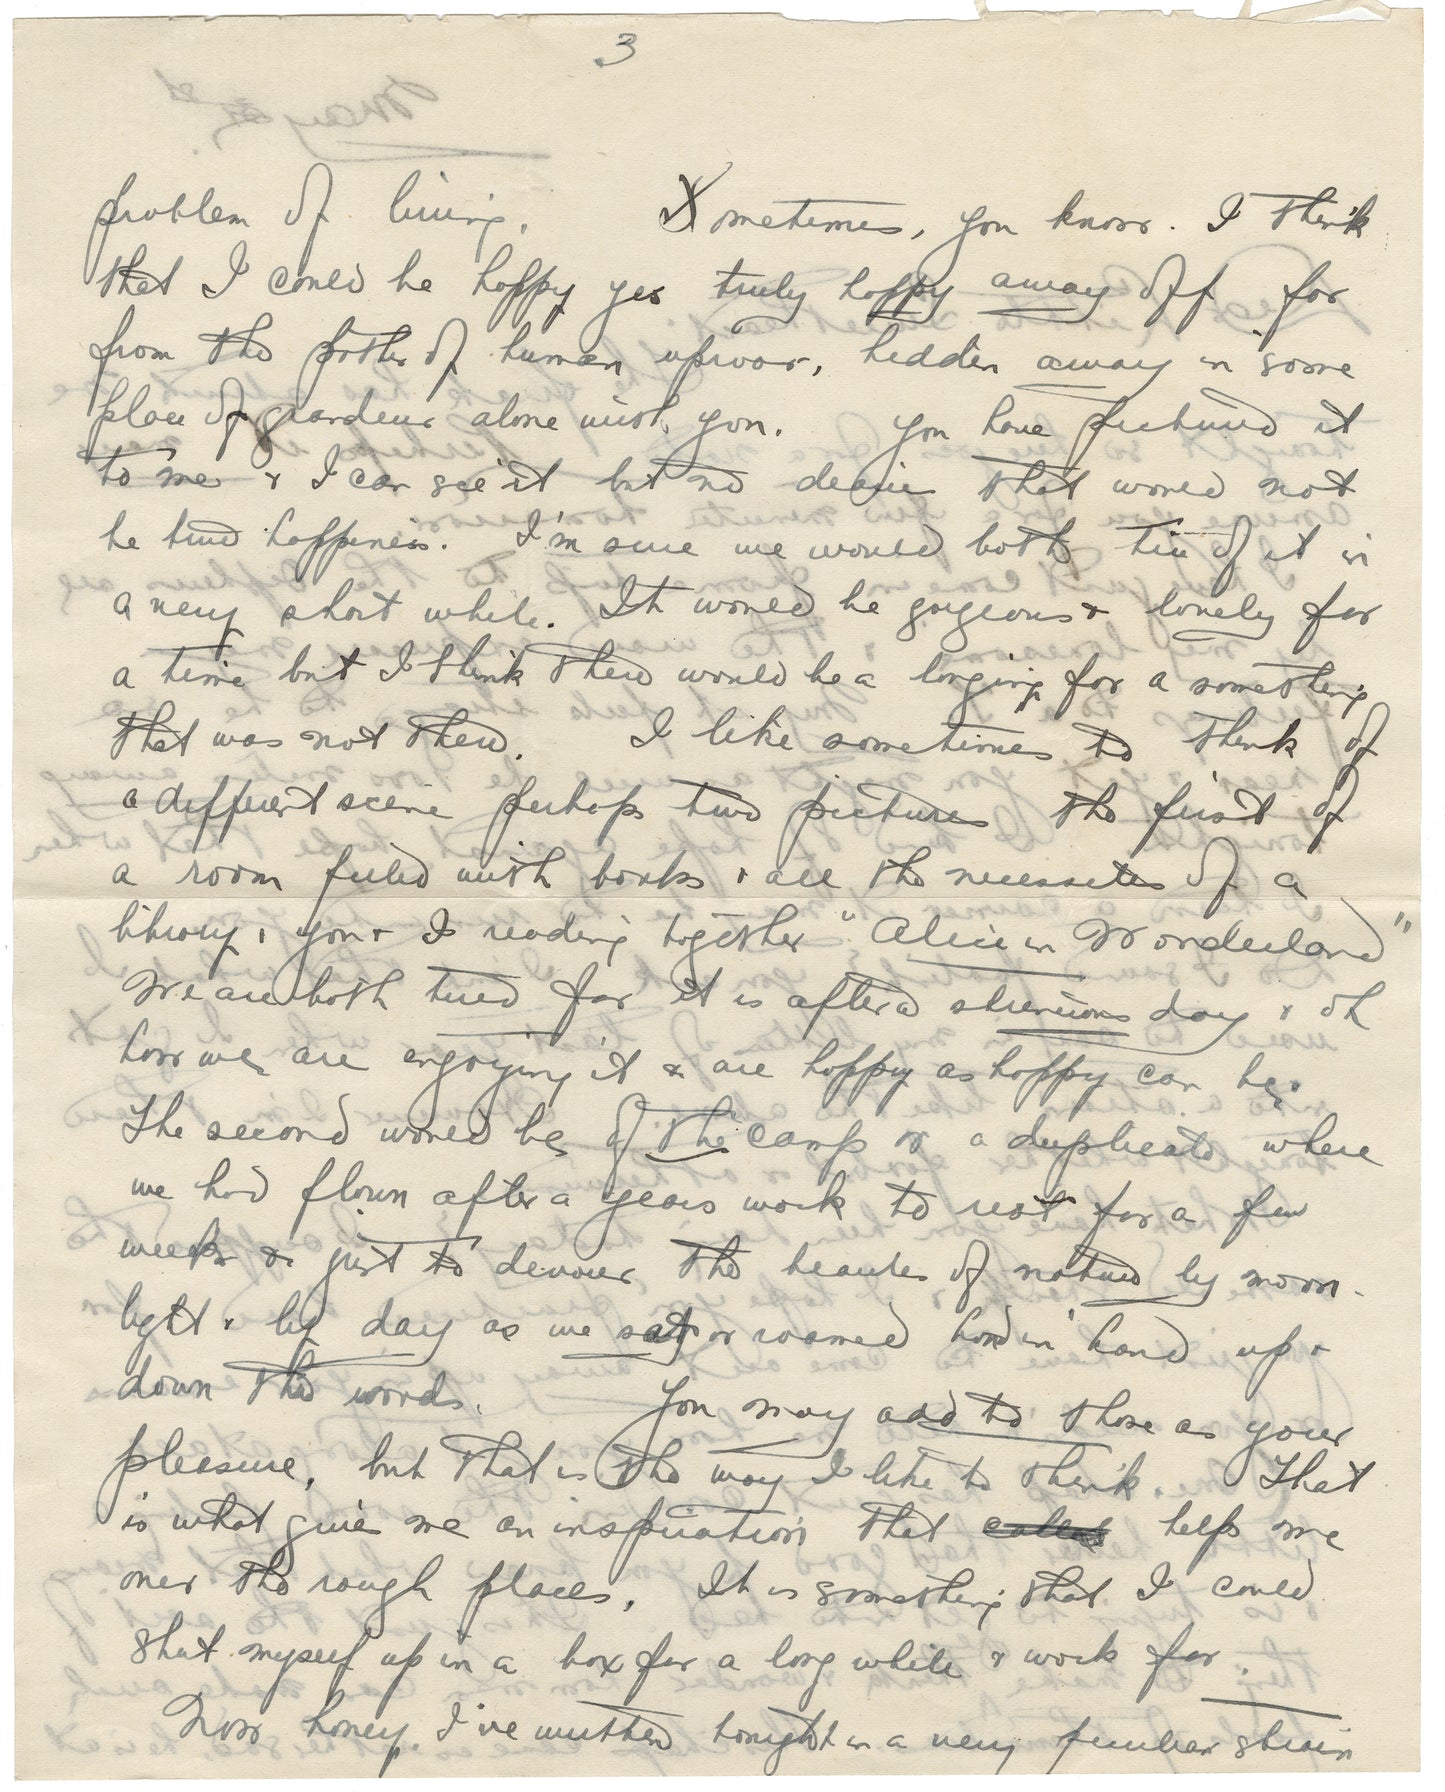 3
problem of living. Sometimes, you know. I think
that I could be happy yes truly happy away off far
from the pother of human uproar, hidden away in some
place of grandeur alone with you. You have pictured it
to me & I can see it but no dearie that would not
be true happiness. I'm sure we would both tire of it in
a very short while. It would be gorgeous & lonely for
a time but I think there would be a longing for a something
that was not there. I like sometimes to think of
a different scene perhaps two pictures the first of
a room filled with books & all the necessites of a
library, & you & I reading together "Alice in Wonderland"
We are both tired for it is after a strenuous day & oh
how we are enjoying it & are happy as happy can be.
The second would be of the camp or a duplicate where
we had flown after a years work to rest for a few
weeks & just to devour the beauties of nature by moon-
light & by day as we sat or roamed hand in hand up &
down the woods. You may add to those as your
pleasure, but that is the way I like to think. That
is what gives me an inspiration that helps me
over the rough places. It is something that I could
shut myself up in a box for a long while & work for.
Now honey, I've written tonight in a very peculiar strain